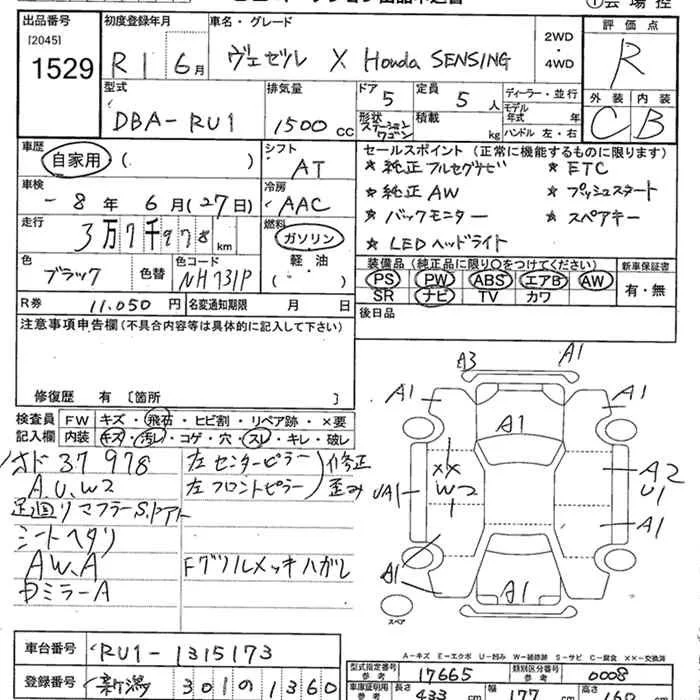 ①会場控
出品番号
[2045]
1529
初度登録年月
R1 6月
車名・グレード
ヴェゼル X Honda SENSING
2WD
・
4WD
評価点
R
型式
DBA-RU1
排気量
1500 CC
ドア
5
定員
5 人
形状
ステーションワゴン
積載
kg
ディーラー・並行
モデル年式 年
ハンドル 左・右
外装 内装
C B
車歴
自家用 ( )
シフト
AT
車検
8年 6月(27日)
冷房
AAC
走行
3万7千978km
燃料
ガソリン
軽・油
( )
色
ブラック
色替
色コード
NH731P
R券 11,050 円
名変通知期限 月 日
セールスポイント (正常に機能するものに限ります)
★ 純正フルセグナビ ★ ETC
★ 純正AW ★ プッシュスタート
★ バックモニター ★ スペアキー
★ LEDヘッドライト
装備品 (純正品に限り○をつけてください)
PS PW ABS エアB AW
SR ナビ TV カワ
新車保証書
有・無
後日品
注意事項申告欄(不具合内容等は具体的に記入して下さい)
修復歴 有 〔箇所 〕
検査員記入欄
FW キズ・飛石・ヒビ割・リペア跡・×要
内装 キズ・汚レ・コゲ・穴・スレ・キレ・破レ
37978
A.U.W2
足回リマフラーS.アト
シートヘタリ
AW.A
ミラーA
左センターピラー
左フロントピラー
修正
歪み
Fグリルメッキハガレ
A3 A1
A1 A1 A1
XX
W2
UA1
A2
U1
A1
A1 A1
スペア
A-キズ E-エクボ U-凹み W-補修跡 S-サビ C-腐食 ××-交換済
車台番号
RU1-1315173
登録番号
新潟 301 の 1360
型式指定番号
参考
17665
類別区分番号
参考
0008
車庫証明用
参考
長さ 433 cm 幅 177 cm 高さ 160 cm